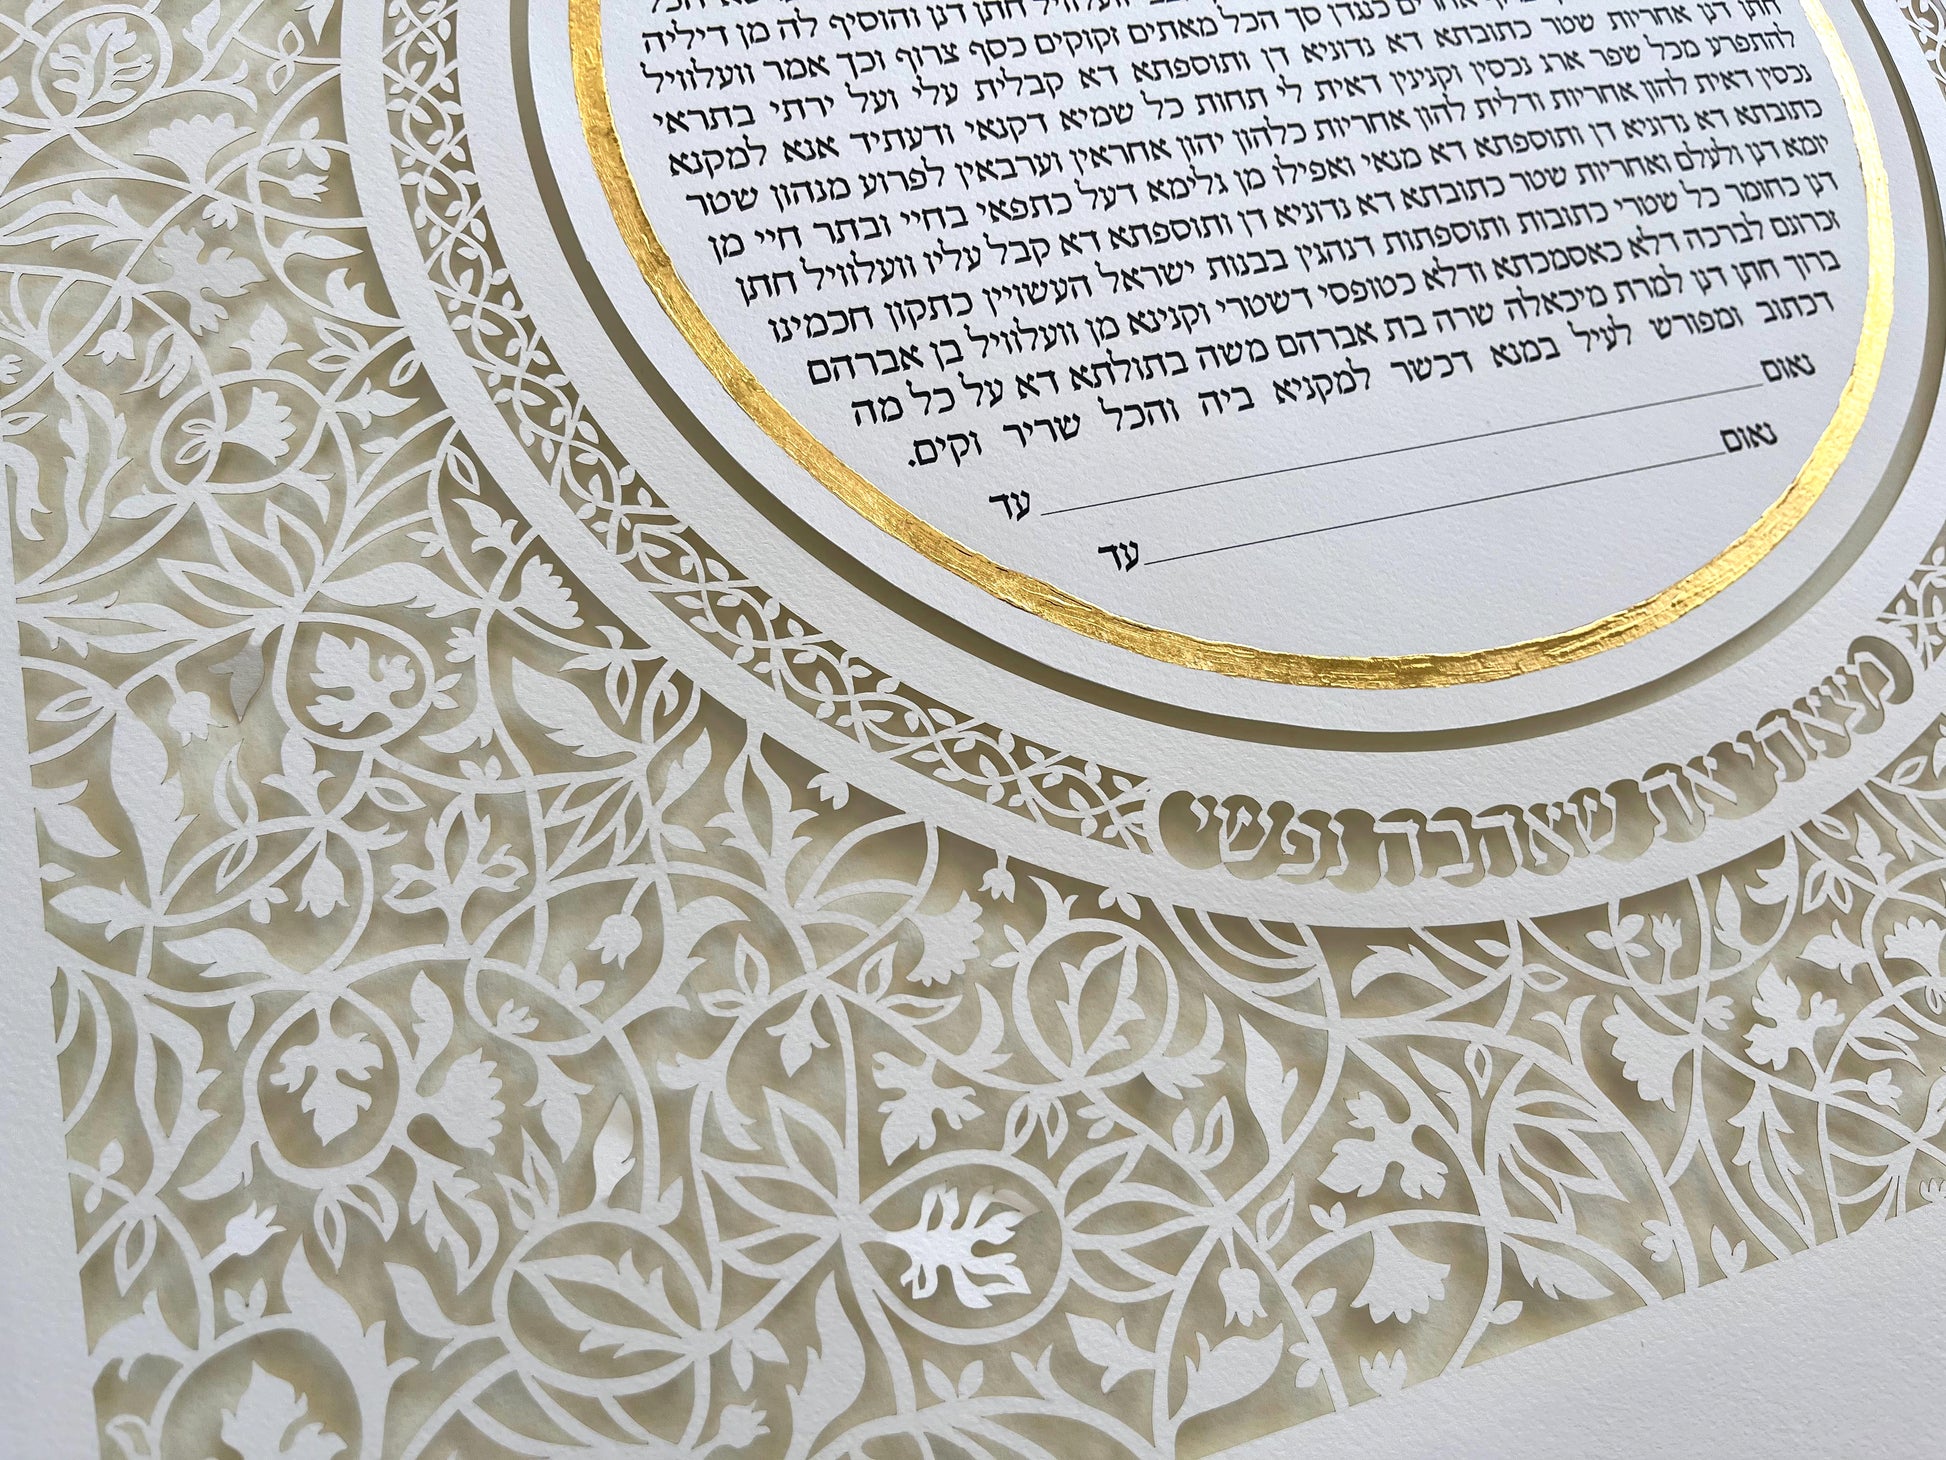 חתן דנן אחריות שטר כתובתא דא נדוניא דן ותוספתא דא קבלית עלי ועל ירתי בתראי
להתפרע מכל שפר ארג נכסין וקנינין דאית לי תחות כל שמיא דקנאי ודעתיד אנא למקנא
נכסין דאית להון אחריות ודלית להון אחריות כלהון יהון אחראין וערבאין לפרוע מנהון שטר
כתובתא דא נדוניא דן ותוספתא דא מנאי ואפילו מן גלימא דעל כתפאי בחיי ובתר חיי מן
יומא דנן ולעלם ואחריות שטר כתובתא דא נדוניא דן ותוספתא דא קבל עליו וועלוויל חתן
דנן כחומר כל שטרי כתובות ותוספתות דנהגין בבנות ישראל העשויין כתקון חכמינו
זכרונם לברכה דלא כאסמכתא ודלא כטופסי דשטרי וקנינא מן וועלוויל בן אברהם
ברוך חתן דנן למרת מיכאלה שרה בת אברהם משה בתולתא דא על כל מה
דכתוב ומפורש לעיל במנא דכשר למקניא ביה והכל שריר וקים.
נאום עד
נאום עד
מצאתי את שאהבה נפשי